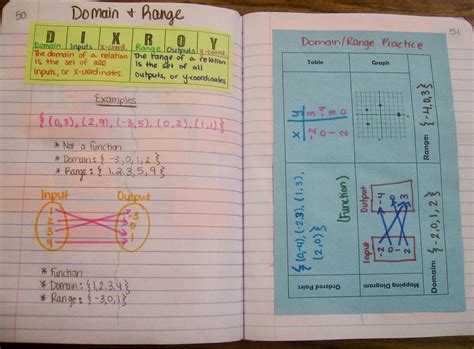 50.
Domain + Range
D I X R O Y
Domain Inputs x-coord. Range Outputs y-coord.
The domain of a relation
is the set of all
inputs, or x-coordinates.
The range of a relation
is the set of all
outputs, or y-coordinates
Examples
{(0,3), (2,9), (-3,5), (0,2), (1,1)}
* Not a function
* Domain: {-3,0,1,2}
* Range: {1,2,3,5,9}
Input Output
1
2
3
4
-3
0
1
* Function
* Domain: {1,2,3,4}
* Range: {-3,0,1}
51
Domain/Range Practice
Ordered Pairs
{(0,-4), (-2,3), (1,3),
(2,0)}
(Function)
Table
x y
-2 3
0 -4
1 3
2 0
Mapping Diagram
Input Output
-2 -4
0 0
1 3
2
Graph
Domain: {-2,0,1,2}
Range: {-4,0,3}